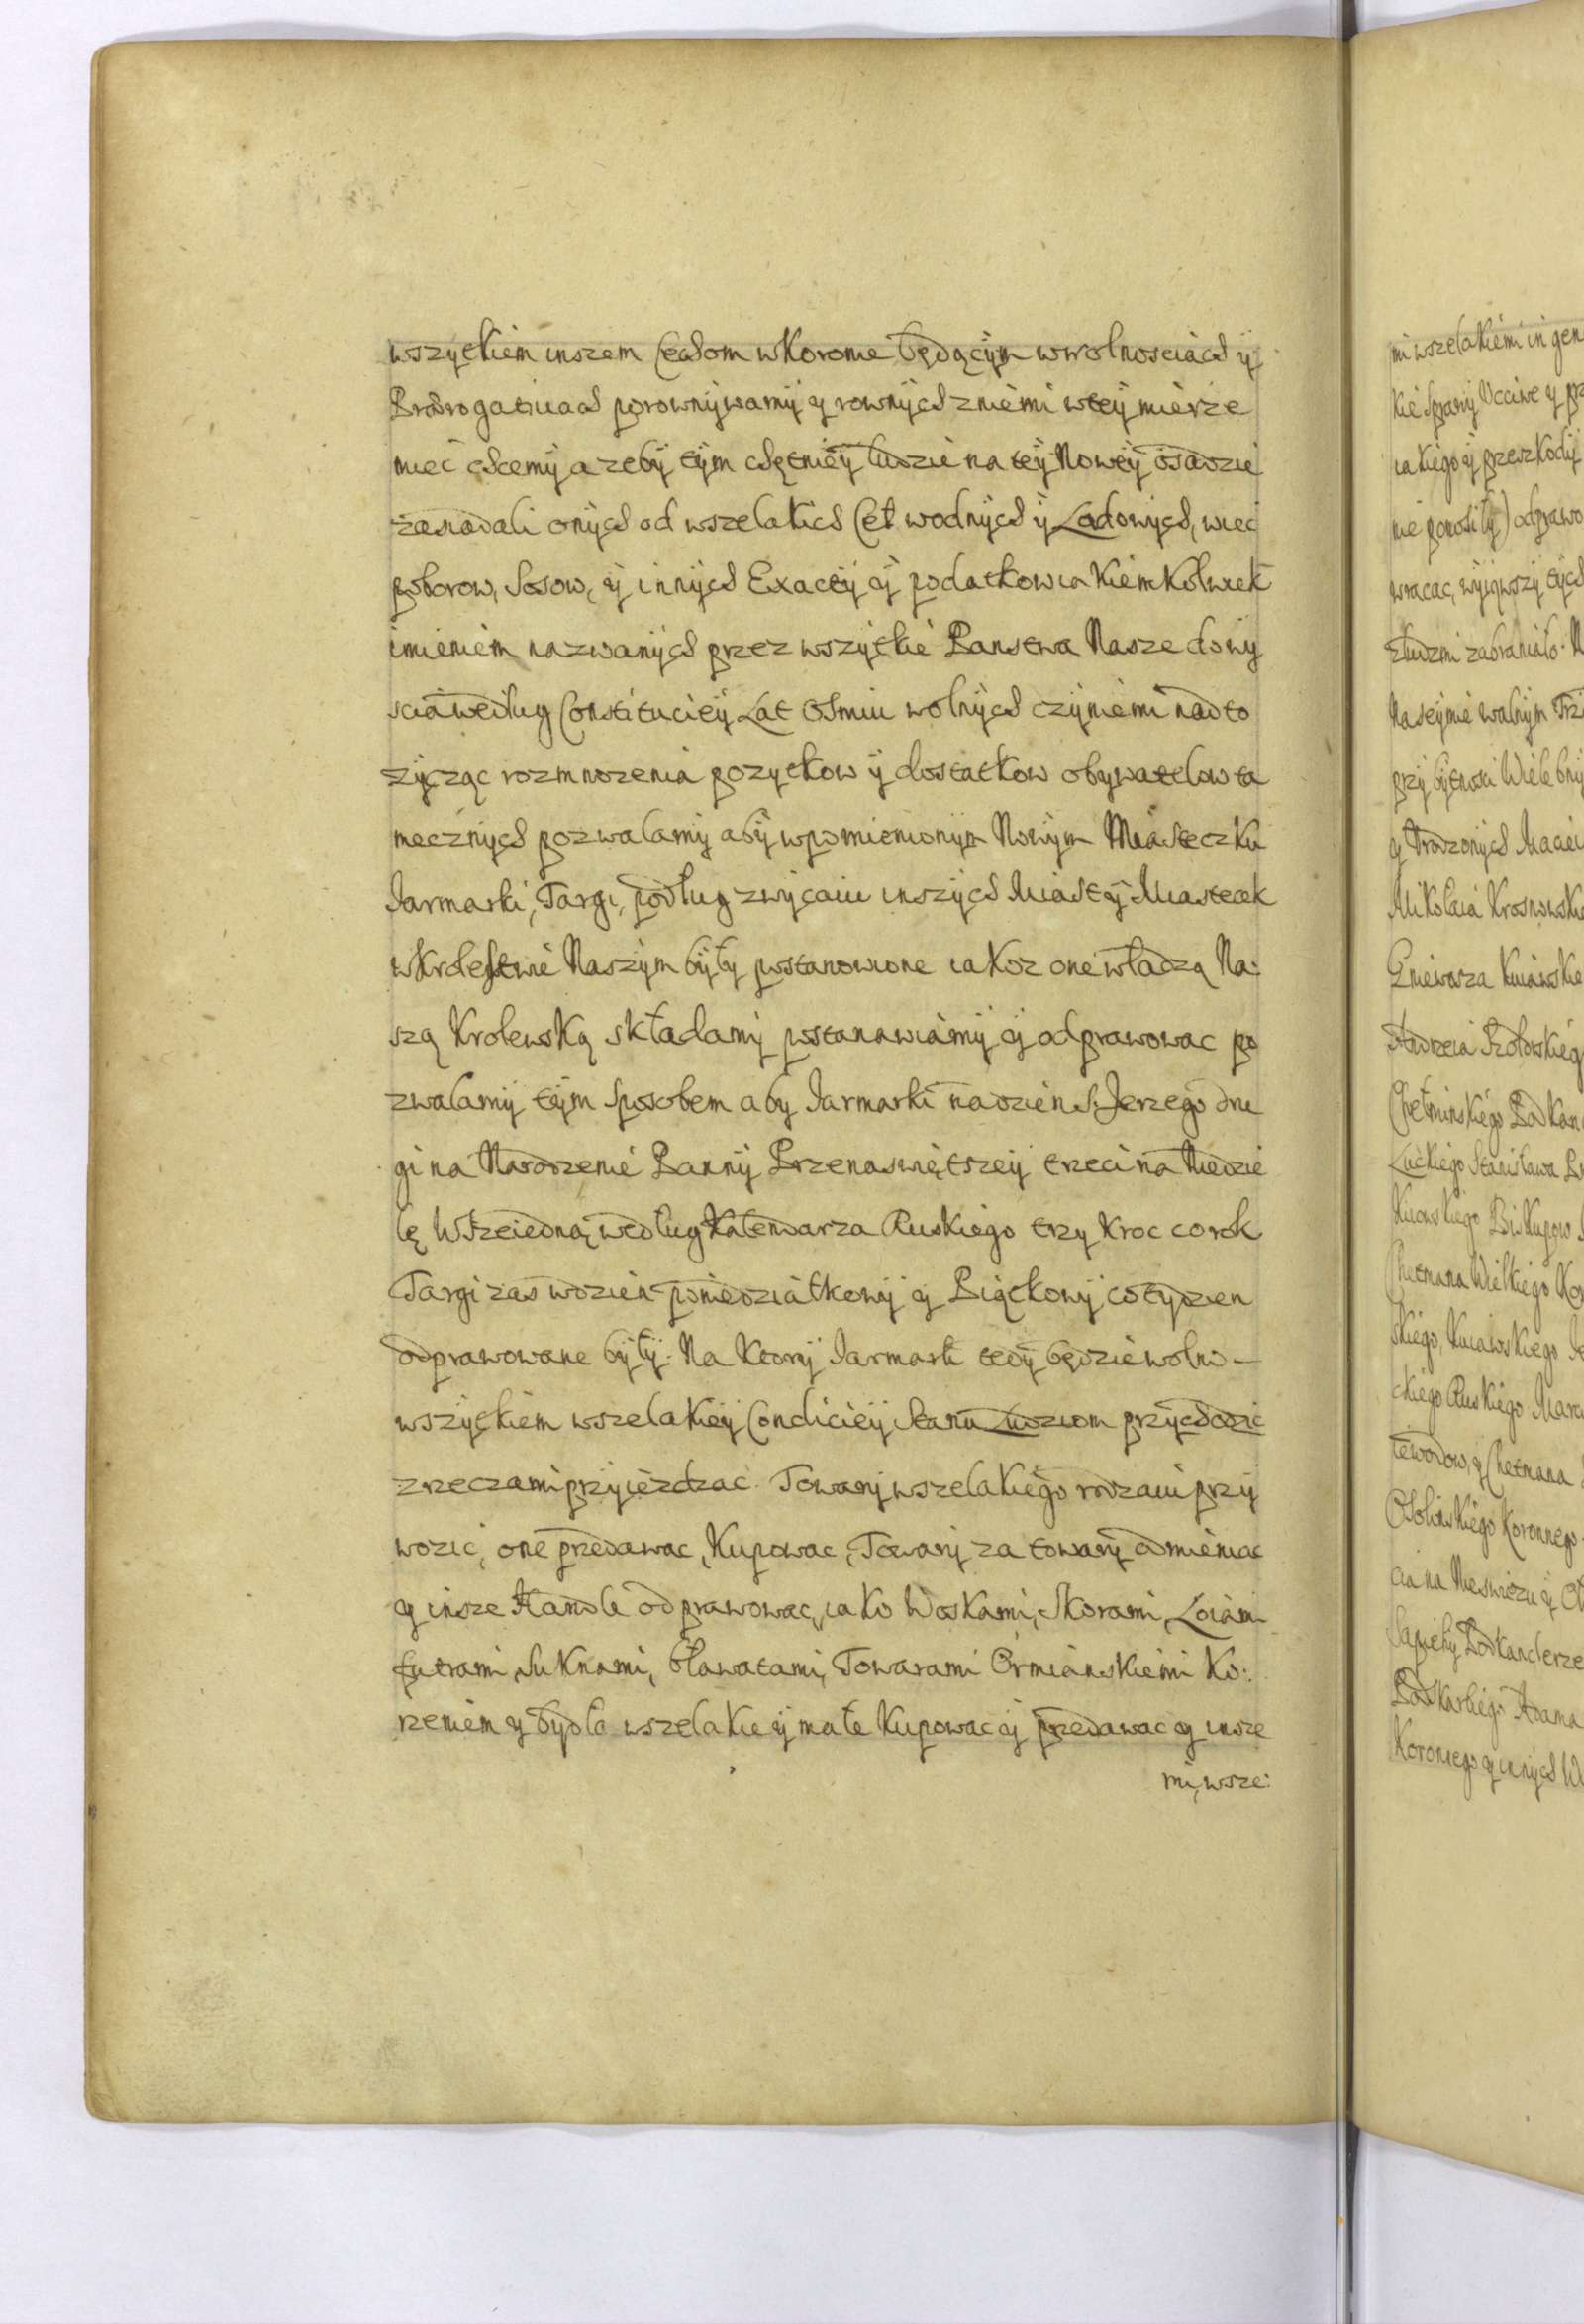 wszytkiem inszem Cechom w Koronie będącym w wolnosciach y
Prærogatiuach porownywamy y rownych z niemi w tey mierze
miec chcemy a zeby tym chętniey ludzie na tey Nowey osadzie
zasiadali onych od wszelakich Ceł wodnych y Lądowych, wiec
poborow, Sosow, y innych Exactiy y podatkow ia kiemkolwiek
imieniem nazwanych przez wszytkie Panstwa Nasze do wy
scia według Constituciey Lat Osmiu wolnych czyniemi nad to
zycząc rozmnozenia pozytkow y dostatkow obywatelow ta
mecznych pozwalamy aby w pomienionym Nowym Miasteczku
Jarmarki, Targi, podług zwyczaiu inszych Miast y Miasteczk
w Krolestwie Naszym były postanowione iakoz one władzą Na:
szą Krolewską składamy postanawiamy y odprawowac po
zwalamy tym sposobem aby Jarmarki na dzien S. Jerzego dru
gi na Narodzenie Panny Przenaswiętszey trzeci na Niedzie
lę Wszeiedną według Kalendarza Ruskiego trzy kroc co rok
Targi zas w dzien poniedziałkowy y Piątkowy co tydzien
odprawowane były: Na ktory Jarmark tedy będzie wolno –
wszytkiem wszelakiey Condiciey Stanu Ludziom przychodzic
z rzeczami przyiezdzac. Towary wszelakiego rodzaiu przy
wozic, one przedawac, kupowac, Towary za towary odmieniac
y insze Handle odprawowac, iako Woskami, Skorami, Loiam
futrami, Suknami, bławatami, Towarami Ormianskiemi Ko:
rzeniem y bydła wszelakiey małe kupowac y przedawac y insze
mi, wsze:
mi wszelakiemi in gen
kie sprawy Vcciwe y pr
iakiego y przeszkody
nie ponosiły) odprawo
wracac, wyiąwszy tych
z ludzmi zabraniało. N
Na seymie walnym
przy bytnosci Wielebny
y Vrodzonych Macieia
Mikołaia Krosnowskie
Gniewosza Kuiawskie
Andrzeia Szołdrskieg
Chełminskiego Podkan
Luckiego Stanisława
Kiiowskiego Biskupow
Chetmana Wielkiego Ko
skiego, Kuiawskiego
ckiego Ruskiego Marc
iewodow, y Chetmana
Osolinskiego Koronnego
cia na Nieswiezu y Ol
Sapiehy Podkanclerze
Podskarbiego Adama
Koronnego y innych W